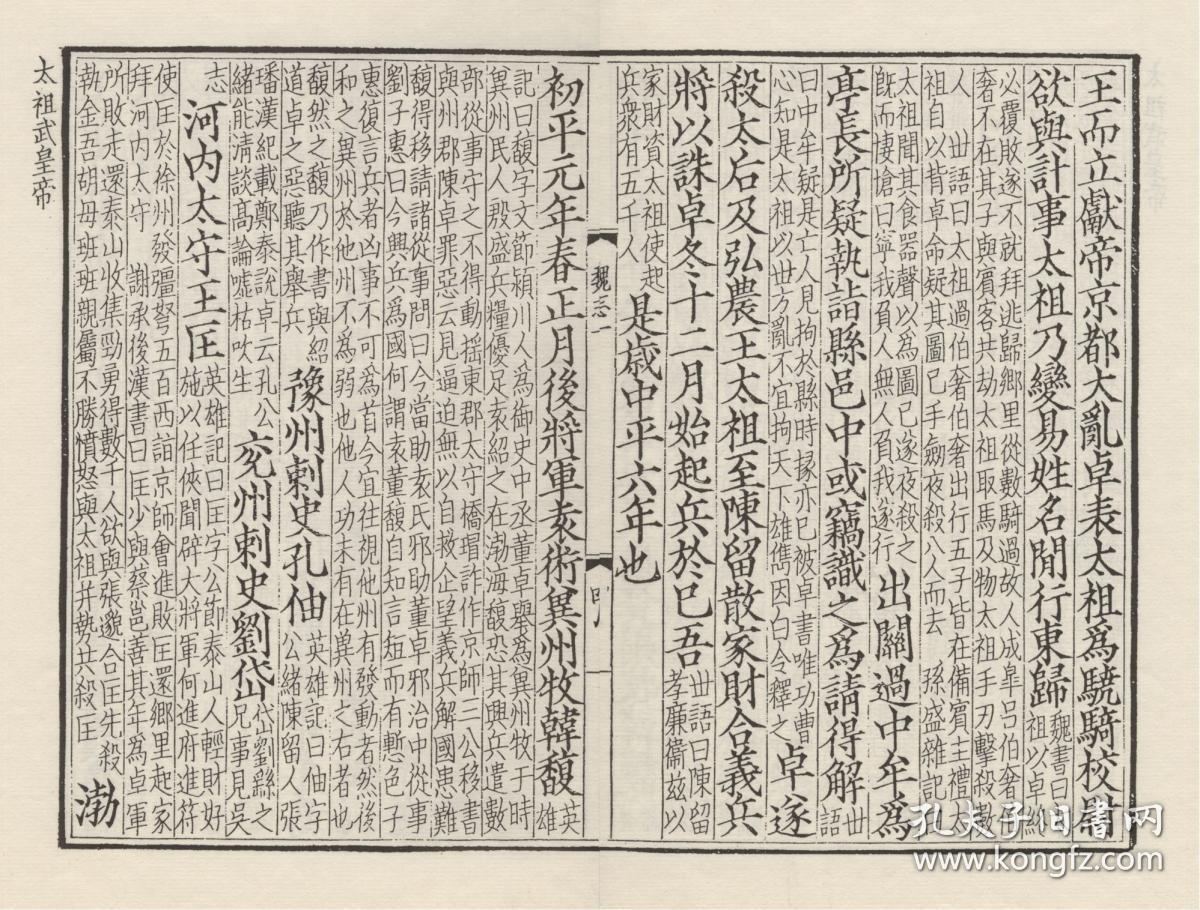 王而立獻帝京都大亂卓表太祖爲驍騎校尉
欲與計事太祖乃變易姓名間行東歸
魏書曰
祖以卓終
必覆敗遂不就拜逃歸鄉里從數騎過故人成皐呂伯奢伯
奢不在其子與賓客共劫太祖取馬及物太祖手刃擊殺數
人　世語曰太祖過伯奢伯奢出行五子皆在備賓主禮太
祖自以背卓命疑其圖已手劒夜殺八人而去　孫盛雜記曰
太祖聞其食器聲以為圖已遂夜殺之
旣而悽愴曰寧我負人無人負我遂行
出關過中牟爲
亭長所疑執詣縣邑中或竊識之爲請得解
世
語
曰中牟疑是亡人見拘於縣時掾亦已被卓書唯功曹
心知是太祖以世方亂不宜拘天下雄儁因白令釋之
卓遂
殺太后及弘農王太祖至陳留散家財合義兵
將以誅卓冬十二月始起兵於已吾
世語曰陳留
孝廉衞兹以
家財資太祖使起
兵衆有五千人
是歲中平六年也
魏志一
初平元年春正月後將軍袁術兾州牧韓馥
英
雄
記曰馥字文節潁川人為御史中丞董卓舉為兾州牧于時
兾州民人殷盛兵糧優足袁紹之在渤海馥恐其興兵遣數
部從事守之不得動揺東郡太守橋瑁詐作京師三公移書
與州郡陳卓罪惡云見逼迫無以自救企望義兵解國患難
馥得移請諸從事問曰今當助袁氏邪助董卓邪治中從事
劉子惠曰今興兵爲國何謂袁董馥自知言短而有慙色子
惠復言兵者凶事不可為首今宜往視他州有發動者然後
和之兾州於他州不為弱也他人功未有在兾州之右者也
馥然之馥乃作書與紹
道卓之惡聽其舉兵
豫州刺史孔伷
英雄記曰伷字
公緒陳留人張
璠漢紀載鄭泰說卓云孔公
緒能清談髙論噓枯吹生
兖州刺史劉岱
岱劉繇之
兄事見吳
志
河内太守王匡
英雄記曰匡字公節泰山人輕財好
施以任俠聞辟大將軍何進府進符
使匡於徐州發彊弩五百西詣京師會進敗匡還鄉里起家
拜河内太守　謝承後漢書曰匡少與蔡邕善其年為卓軍
所敗走還泰山收集勁勇得數千人欲與張邈合匡先殺
執金吾胡母班班親屬不勝憤怒與太祖并勢共殺匡
渤
太祖武皇帝
孔夫子旧書网
www.kongfz.com